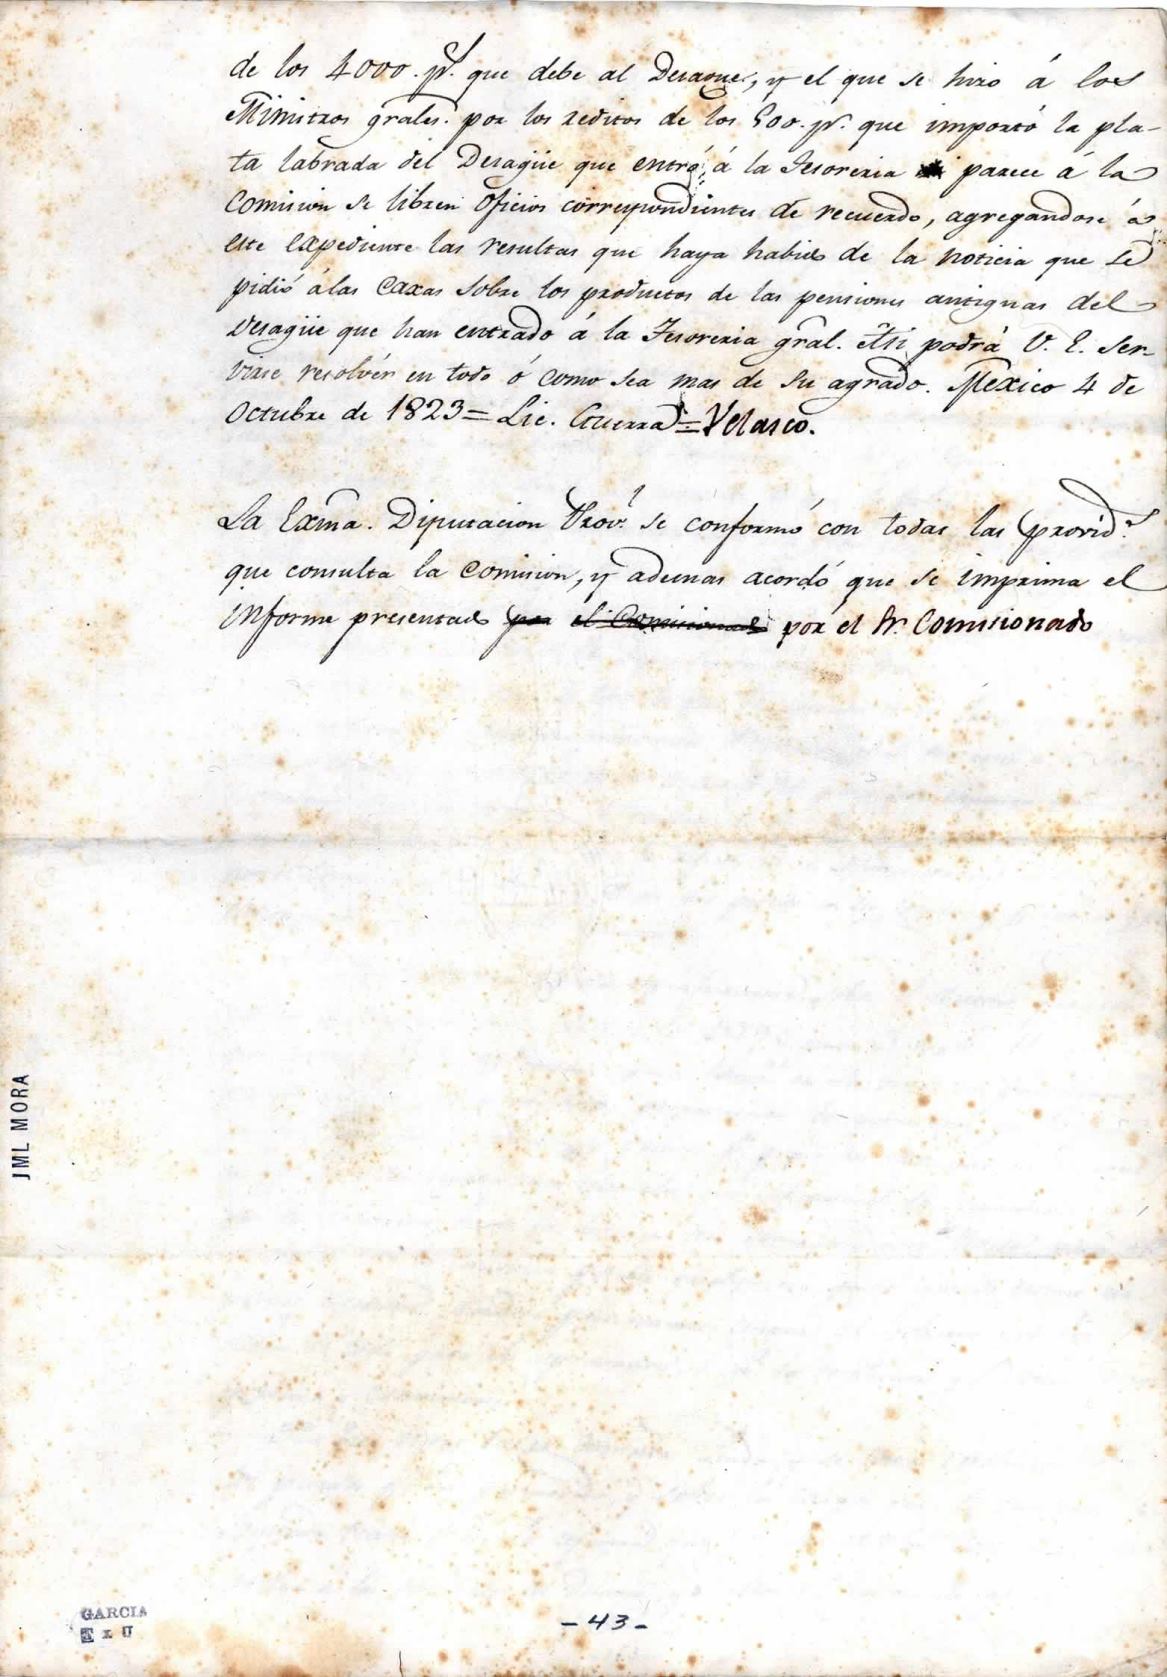 de los 4000. p.s que debe al Desague, y el que se hizo á los
Ministros grales. por los reditos de los 800. p.s que importó la pla-
ta labrada del Desagüe que entró á la Tesoreria parece á la
Comision se libren oficios correspondientes de recuerdo, agregandose á
este expediente las resultas que haya habido de la noticia que se
pidió á las Caxas sobre los productos de las pensiones antiguas del
Desagüe que han entrado á la Tesoreria gral. Asi podrá V. E. ser-
virse resolvér en todo ó como sea mas de su agrado. Mexico 4 de
Octubre de 1823 = Lic. Guerra = Velasco.
La Exma. Diputacion Prov.l se conformó con todas las provid.s
que consulta la Comision, y ademas acordó que se imprima el
informe presentado por el Comisionado por el Sr. Comisionado
JML MORA
GARCIA
- 43 -